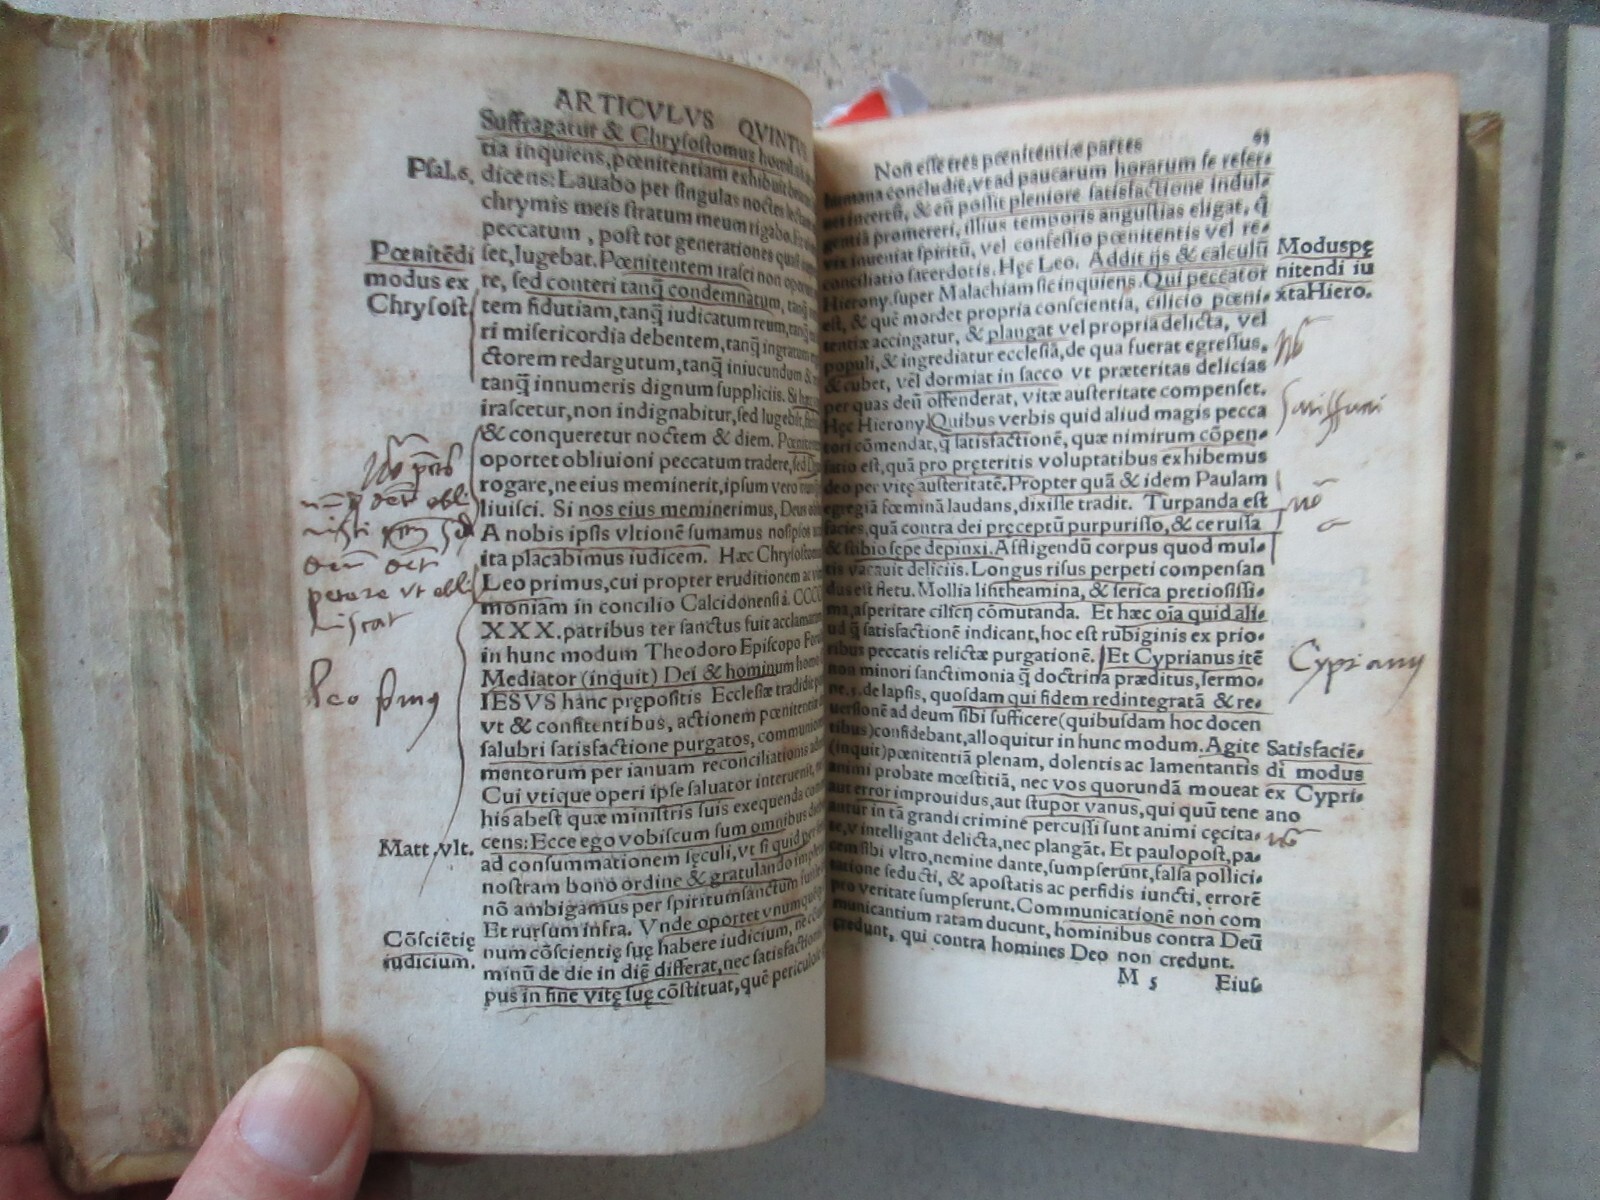 ARTICVLVS QVINTV
Suffragatur & Chrysostomus homil
tia inquiens, pœnitentiam exhibuit
Psal.6. dicens: Lauabo per singulas noctes
chrymis meis stratum meum rigabo.
peccatum, post tot generationes quasi
Pœnitēdi set, lugebat. Pœnitentem irasci non
modus ex re, sed conteri tanq̄ condemnatum,
Chrysost. tem fidutiam, tanq̄ iudicatum reum, tanq̄
ri misericordia debentem, tanq̄ ingratum
ctorem redargutum, tanq̄ iniucundum &
tanq̄ innumeris dignum suppliciis. Si
irascetur, non indignabitur, sed lugebit,
& conqueretur noctem & diem.
oportet obliuioni peccatum tradere, sed
rogare, ne eius meminerit, ipsum vero
liuisci. Si nos eius meminerimus, Deus
A nobis ipsis vltionē sumamus nosipsos
ita placabimus iudicem. Hæc Chrysostom
Leo primus, cui propter eruditionem ac
moniam in concilio Calcidonensi á. CCCC
XXX. patribus ter sanctus fuit acclamatum
in hunc modum Theodoro Episcopo
Mediator (inquit) Dei & hominum homo
IESVS hanc prępositis Ecclesiæ tradidit
vt & confitentibus, actionem pœnitentiæ
salubri satisfactione purgatos,
mentorum per ianuam reconciliationis
Cui vtique operi ipse saluator interuenit,
his abest quæ ministris suis exequenda
Matt. vlt. cens: Ecce ego vobiscum sum omnibus
ad consummationem sęculi, vt si quid per
nostram bono ordine & gratulando
nō ambigamus per spiritumsanctum
Et rursum infra. Vnde oportet vnumquę
Cōsciētię num cōscientię suę habere iudicium, ne
iudicium. minū de die in diē differat, nec satisfactio
pus in fine vitę suę cōstituat, quē
Leo primus
Non esse tres pœnitentiæ partes
humana concludit, vt ad paucarum horarum se reser-
uet incertū, & cū possit pleniore satisfactione indul-
gentiā promereri, illius temporis angustias eligat, q̄
vix inueniat spiritū, vel confessio pœnitentis vel re-
conciliatio sacerdotis. Hęc Leo. Addit ijs & calculū Moduspę
Hierony. super Malachiam sic inquiens. Qui peccator nitendi iu
est, & quē mordet propria conscientia, cilicio pœni- xtaHiero.
tentiæ accingatur, & plangat vel propria delicta, vel
populi, & ingrediatur ecclesiā, de qua fuerat egressus,
& cubet, vel dormiat in sacco vt præteritas delicias
per quas deū offenderat, vitæ austeritate compenset.
Hęc Hierony. Quibus verbis quid aliud magis pecca
tori cōmendat, q̄ satisfactionē, quæ nimirum cōpen-
satio est, quā pro pręteritis voluptatibus exhibemus
deo per vitę austeritatē. Propter quā & idem Paulam
egregiā fœminā laudans, dixisse tradit. Turpanda est
facies, quā contra dei pręceptū purpurisso, & cerussa
& stibio sępe depinxi. Affligendū corpus quod mul-
tis vacauit deliciis. Longus risus perpeti compensan
dus est fletu. Mollia listheamina, & serica pretiosissi-
ma, asperitare cilscij cōmutanda. Et hæc oīa quid ali-
ud q̄ satisfactionē indicant, hoc est rubiginis ex prio-
ribus peccatis relictæ purgationē. Et Cyprianus itē
Cyprianus
non minori sanctimonia q̄ doctrina præditus, sermo-
ne. 5. de lapsis, quosdam qui fidem redintegratā & re-
uersionē ad deum sibi sufficere (quibusdam hoc docen
tibus) confidebant, alloquitur in hunc modum. Agite Satisfaciē-
(inquit) pœnitentiā plenam, dolentis ac lamentantis di modus
animi probate mœstitiā, nec vos quorundā moueat ex Cypri-
aut error improuidus, aut stupor vanus, qui quū tene ano
antur in tā grandi crimine percussi sunt animi cęcita-
te, vt intelligant delicta, nec plangāt. Et paulopost, pa-
cem sibi vltro, nemine dante, sumpserunt, falsa pollici-
tatione seducti, & apostatis ac perfidis iuncti, errorē
pro veritate sumpserunt. Communicationē non com
municantium ratam ducunt, hominibus contra Deū
credunt, qui contra homines Deo non credunt.
M 5 Eius